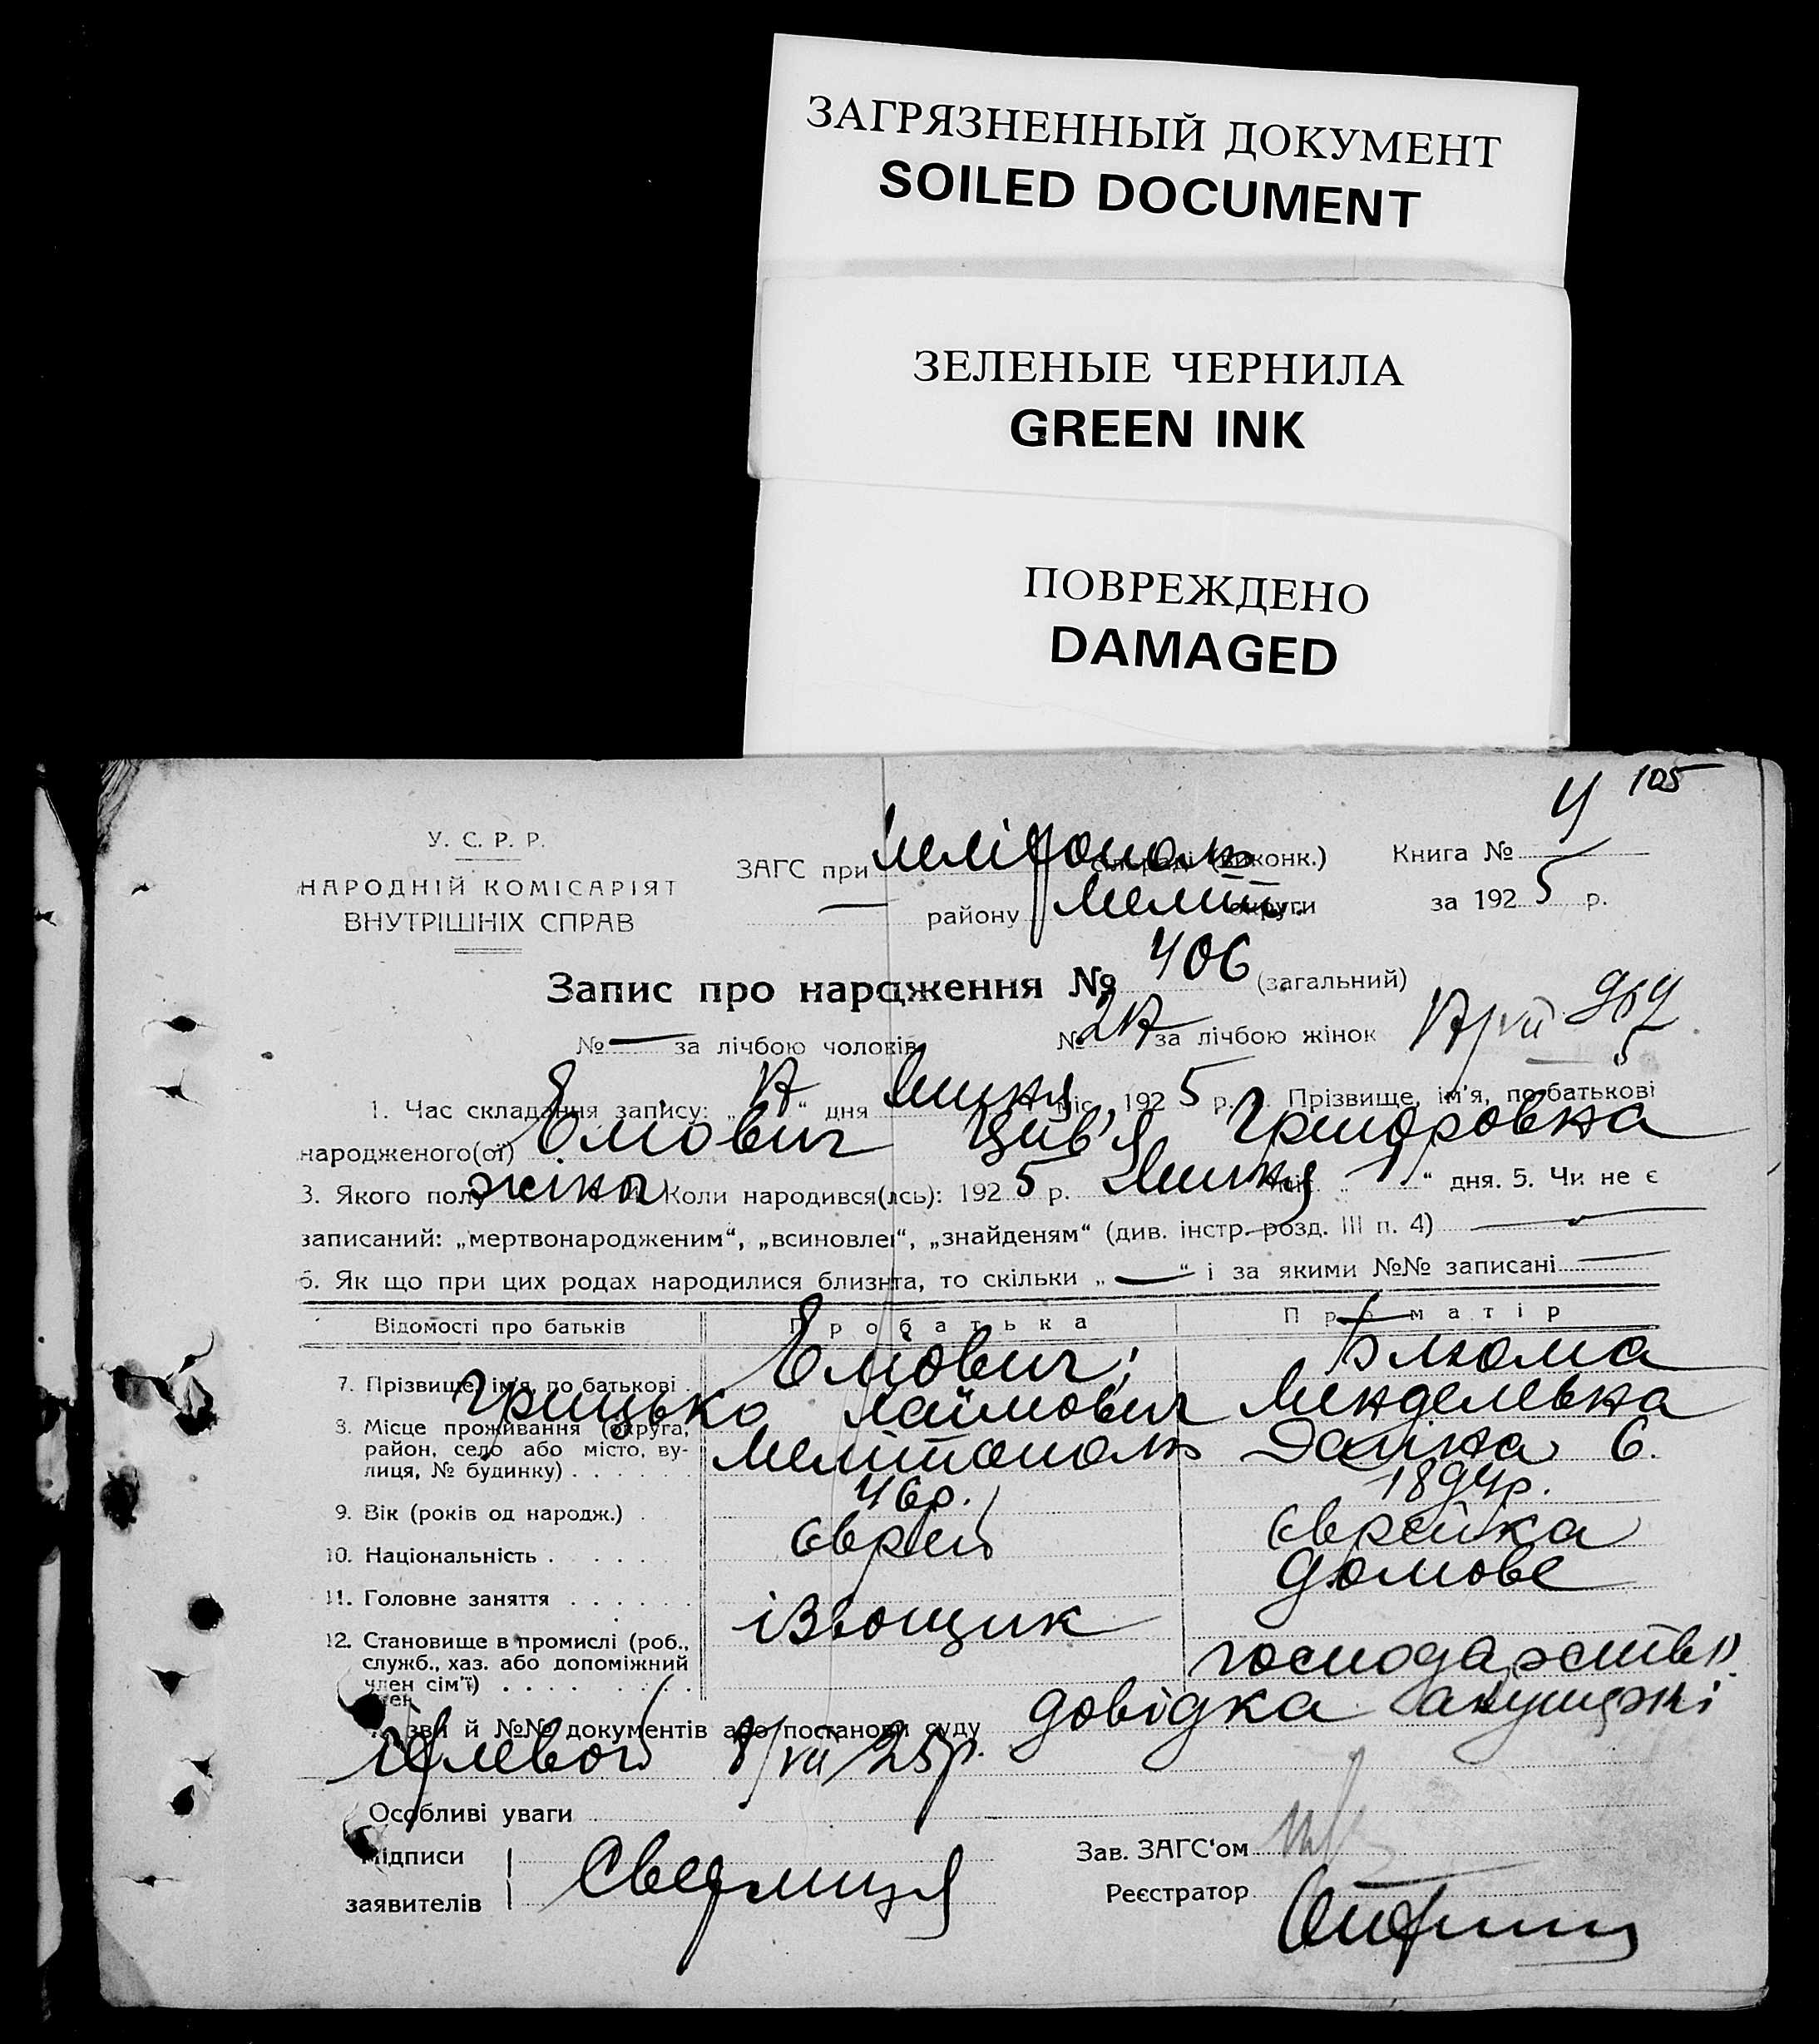 ЗАГРЯЗНЕННЫЙ ДОКУМЕНТ
SOILED DOCUMENT
ЗЕЛЕНЫЕ ЧЕРНИЛА
GREEN INK
ПОВРЕЖДЕНО
DAMAGED
4 105
У. С. Р. Р.
НАРОДНІЙ КОМІСАРІЯТ
ВНУТРІШНІХ СПРАВ
ЗАГС при Мелітополь (виконк.) Книга №
району Меліт. округи за 1925 р.
Запис про народження № 406 (загальний)
№ — за лічбою чоловів № за лічбою жінок
1. Час складання запису: „ “ дня Липня міс. 1925 р. Прізвище, ім'я, по батькові
народженого(ої) Емович Цив'я Григоровна
3. Якого полу жіноч Коли народився(лсь): 1925 р. Липня „1“ дня. 5. Чи не є
записаний: „мертвонародженим“, „всиновлен“, „знайденям“ (див. інстр. розд. III п. 4) —
6. Як що при цих родах народилися близнта, то скільки „—“ і за якими №№ записані —
Відомості про батьків Про батька Про матір
7. Прізвище, ім'я, по батькові Емович; Блюма
Грицько Хаймович Менделевна
8. Місце проживання (округа, район, село або місто, вулиця, № будинку) Мелітополь 6.
9. Вік (років од народж.) 46р. 1894р.
10. Національність Єврей Єврейка
11. Головне заняття домове
ізвощик
12. Становище в промислі (роб., служб., хаз. або допоміжний член сім'ї) господарство
й №№ документів або постанови суду довідка акушерки
8/VII/25р.
Особливі уваги
Підписи
заявителів
Зав. ЗАГС'ом
Реєстратор